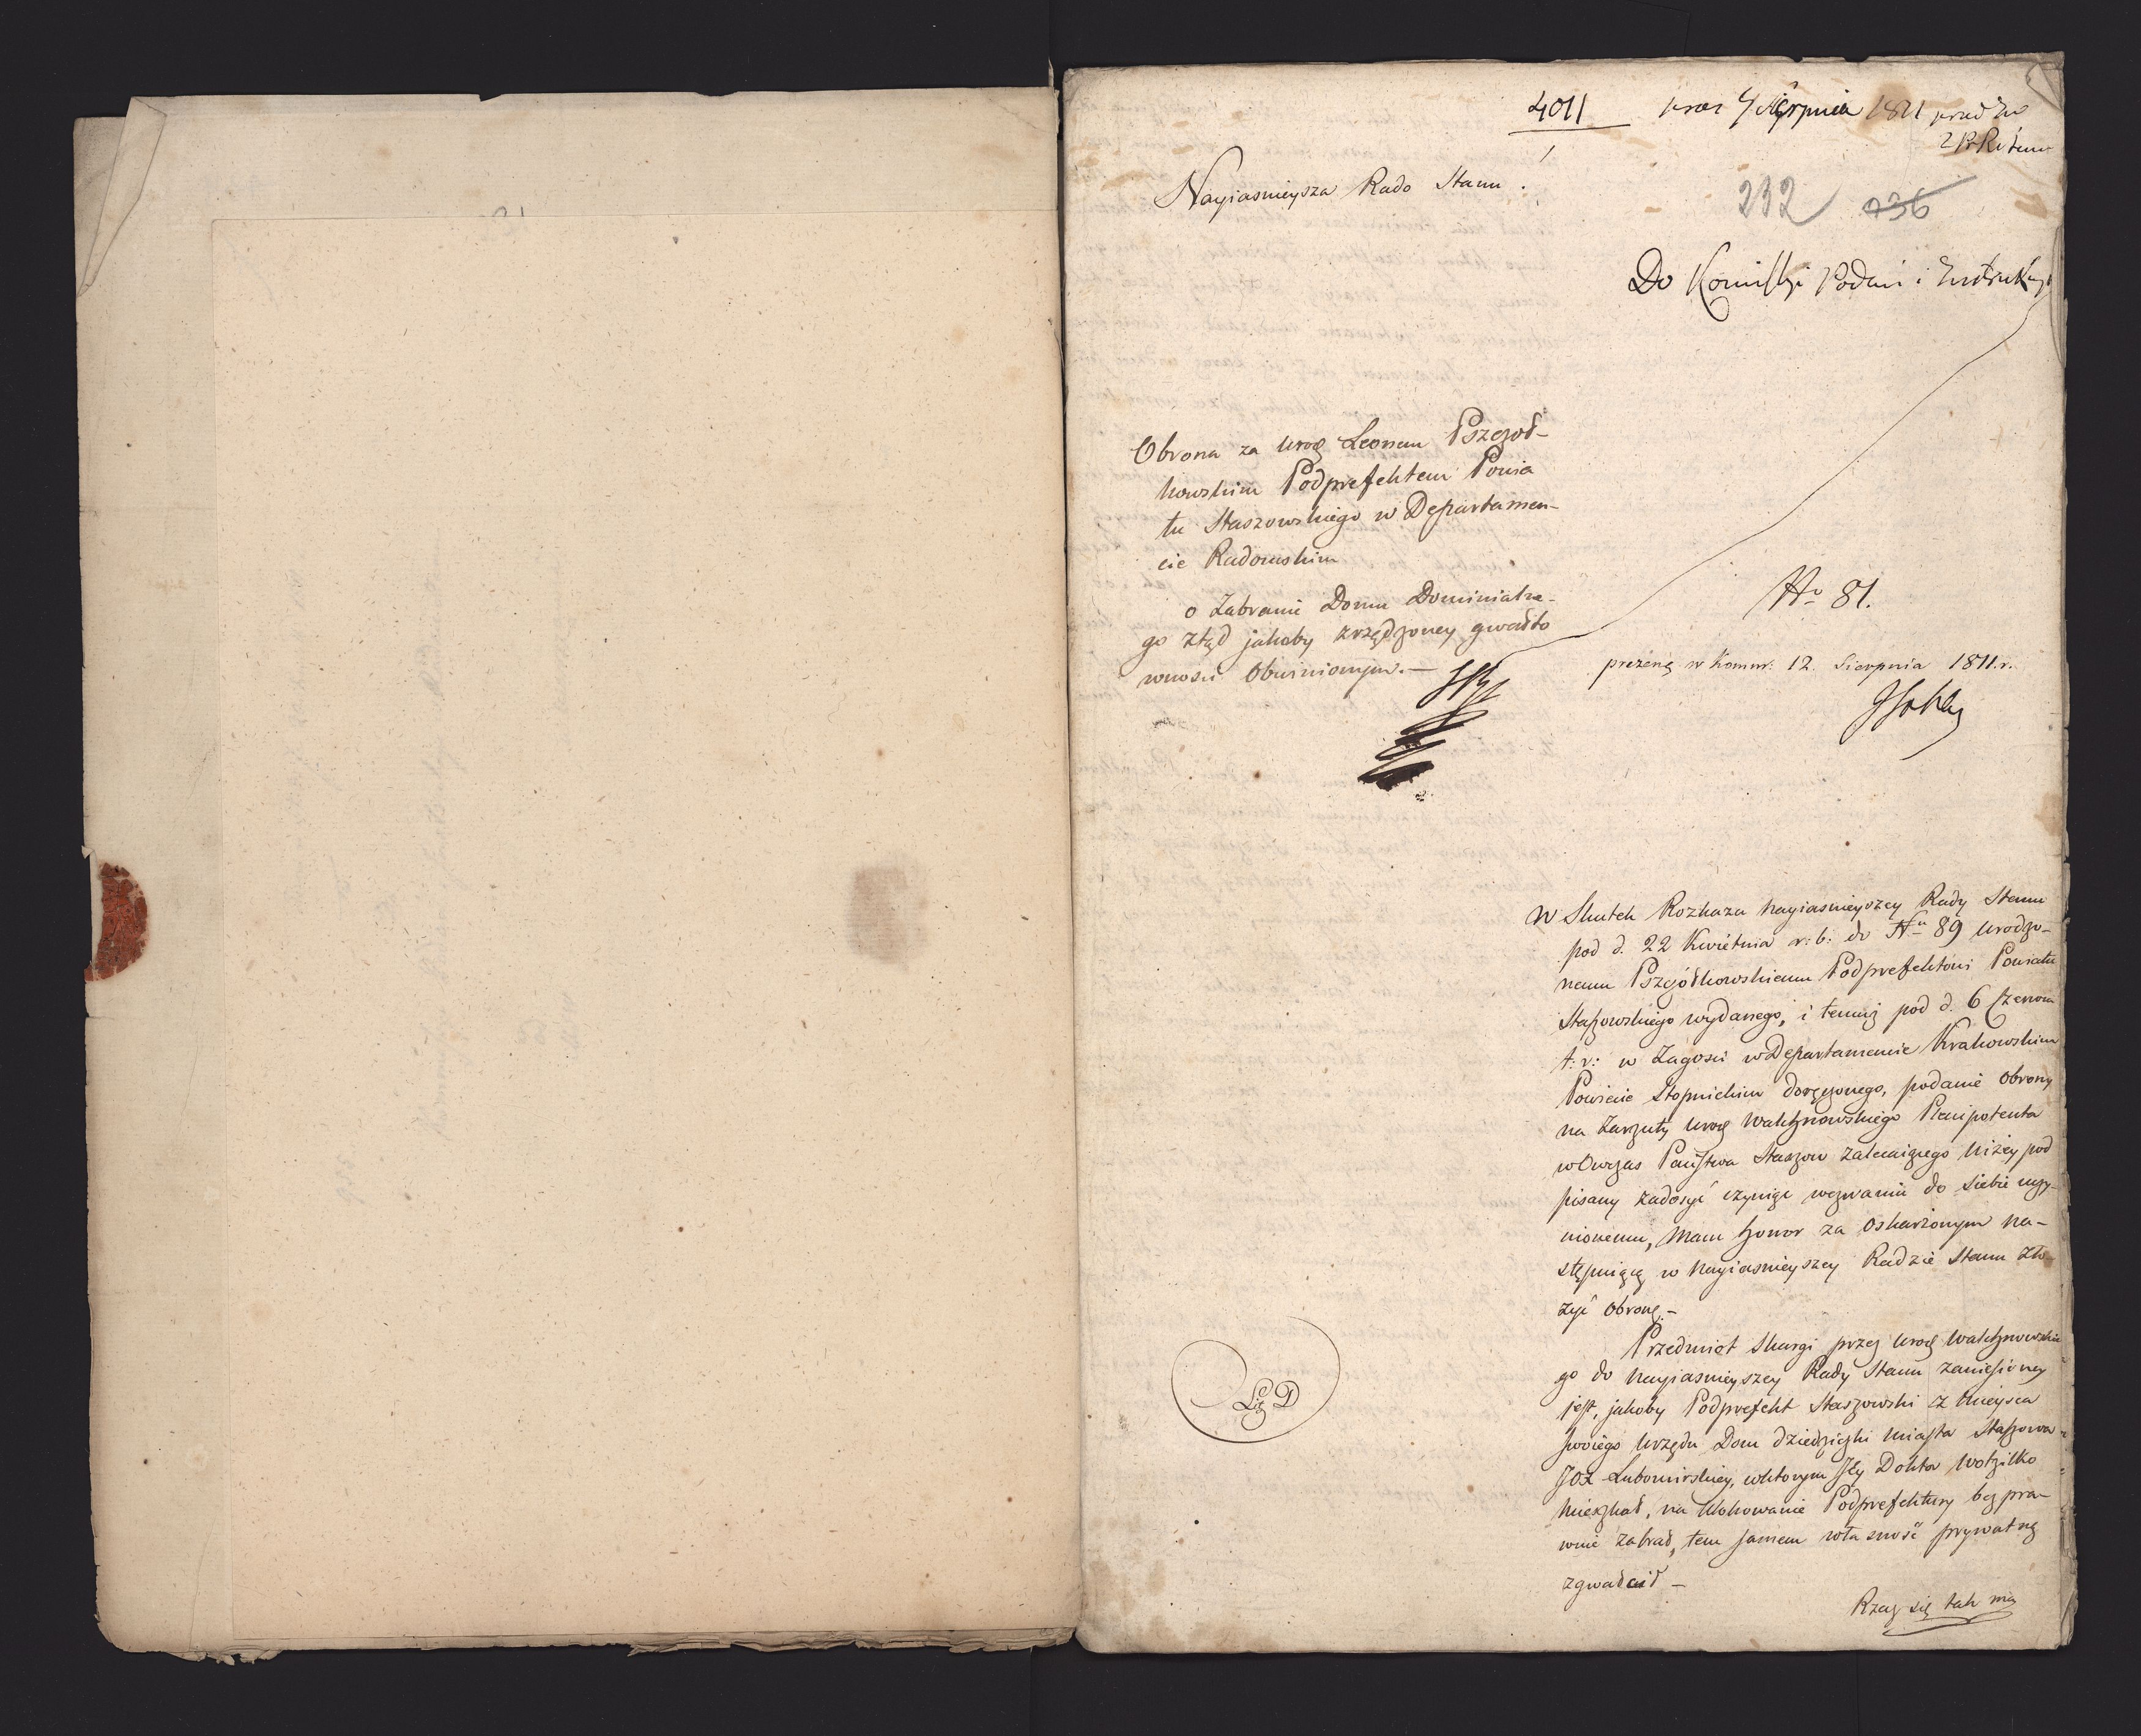 4011 4 Sierpnia 1811
Nayiasnieysza Rado Stanu !
232 236
Do Kommissyi Podań i Instrukcyi
Obrona za Urog Leonem Pszczoł-
kowskim Podprefektem Powia
tu Staszowskiego w Departamen-
cie Radomskim
o Zabranie Domu Dominialne-
go ztąd jakoby zrządzoney gwałto
wności Obwinionym. —
No 81.
prezeną w Kommr: 12. Sierpnia 1811.r.
W Skutek Rozkazu Nayiasnieyszey Rady Stanu
pod d. 22 Kwietnia r: b: do No 89 Urodzo-
nemu Pszczółkowskiemu Podprefektowi Powiatu
Staszowskiego wydanego, i temuż pod d. 6 Czerwca
t: r: w Zagosci w Departamencie Krakowskim
Powiecie Stopnickim doręczonego, podanie Obrony
na Zarzuty Urog Walchnowskiego Plenipotenta
wówczas Państwa Staszow zalecaiącego niżey pod
pisany zadosyć czyniąc wezwaniu do siebie uczy-
nionemu, mam honor za Oskarżonym na-
stępuiącą w Nayiasnieyszey Radzie Stanu zło-
żyć Obronę. —
Przedmiot Skargi przez Urog Walchnowskie
go do Nayiasnieyszey Rady Stanu zaniesioney
jest, jakoby Podprefekt Staszowski z mieysca
swoiego Urzędu Dom dziedziczki Miasta Staszowa
JOX Lubomirskiey, w którym Dokta Wotzilko
mieszkał, na Ulokowanie Podprefektury bezpra-
wnie zabrał, tem samem własność prywatną
zgwałcił —
Rzecz się tak ma